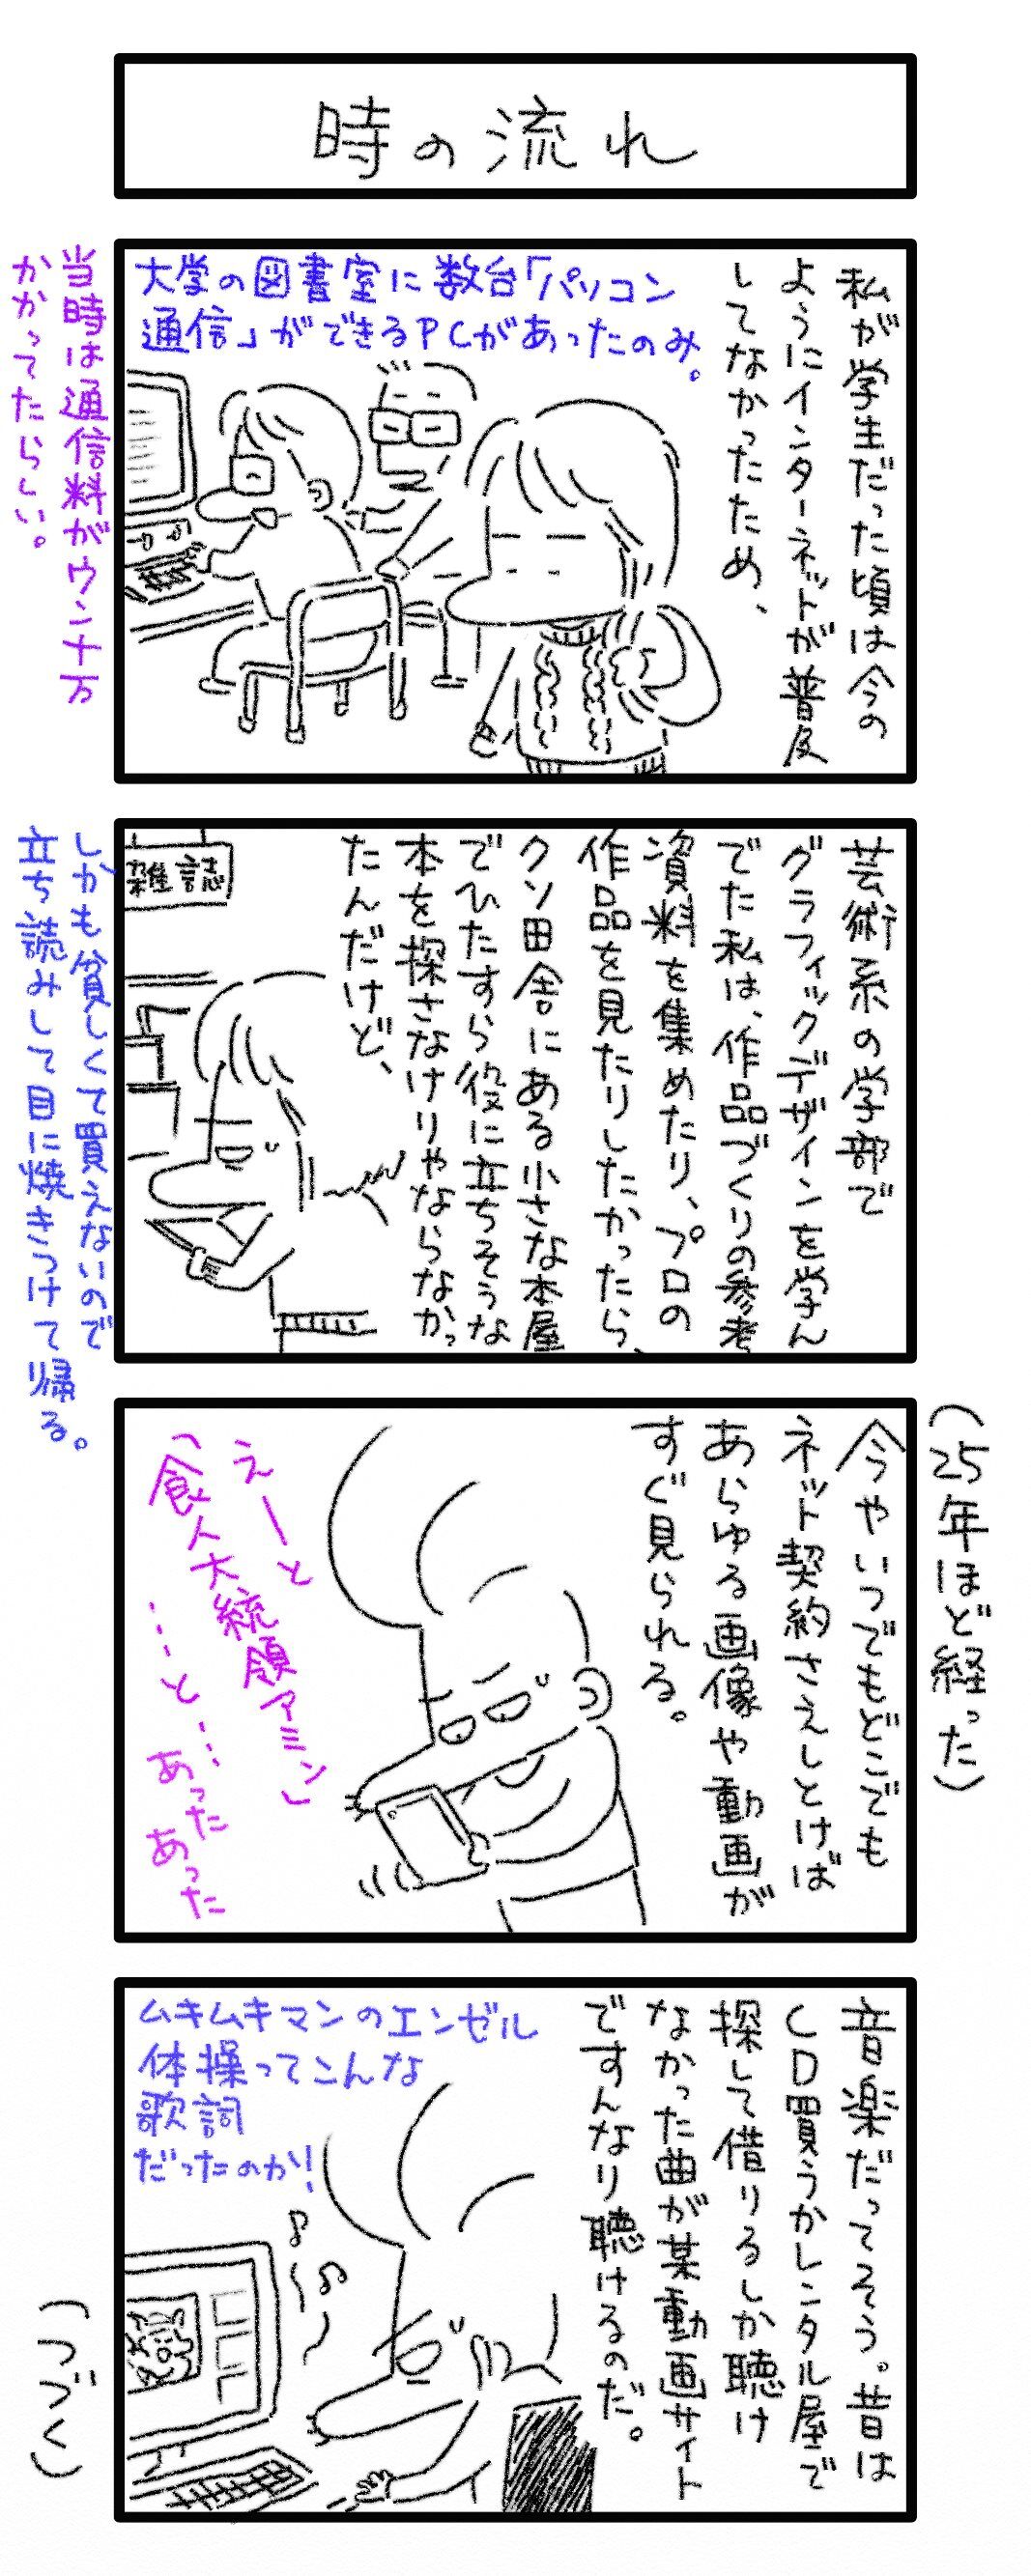 時の流れ
私が学生だった頃は今の
ようにインターネットが普及
してなかったため、
大学の図書室に数台「パソコン
通信」ができるPCがあったのみ。
当時は通信料がウン十万
かかってたらしい。
芸術系の学部で
グラフィックデザインを学ん
でた私は、作品づくりの参考
資料を集めたり、プロの
作品を見たりしたかったら、
クソ田舎にある小さな本屋
でひたすら役に立ちそうな
本を探さなけりゃならなかっ
たんだけど、
雑誌
しかも貧しくて買えないので
立ち読みして目に焼きつけて帰る。
(25年ほど経った)
今やいつでもどこでも
ネット契約さえしとけば
あらゆる画像や動画が
すぐ見られる。
えーと
「食人大統領アミン」
…と…あったあった
音楽だってそう。昔は
CD買うかレンタル屋で
探して借りるしか聴け
なかった曲が某動画サイト
ですんなり聴けるのだ。
ムキムキマンのエンゼル
体操ってこんな
歌詞
だったのか!
(つづく)